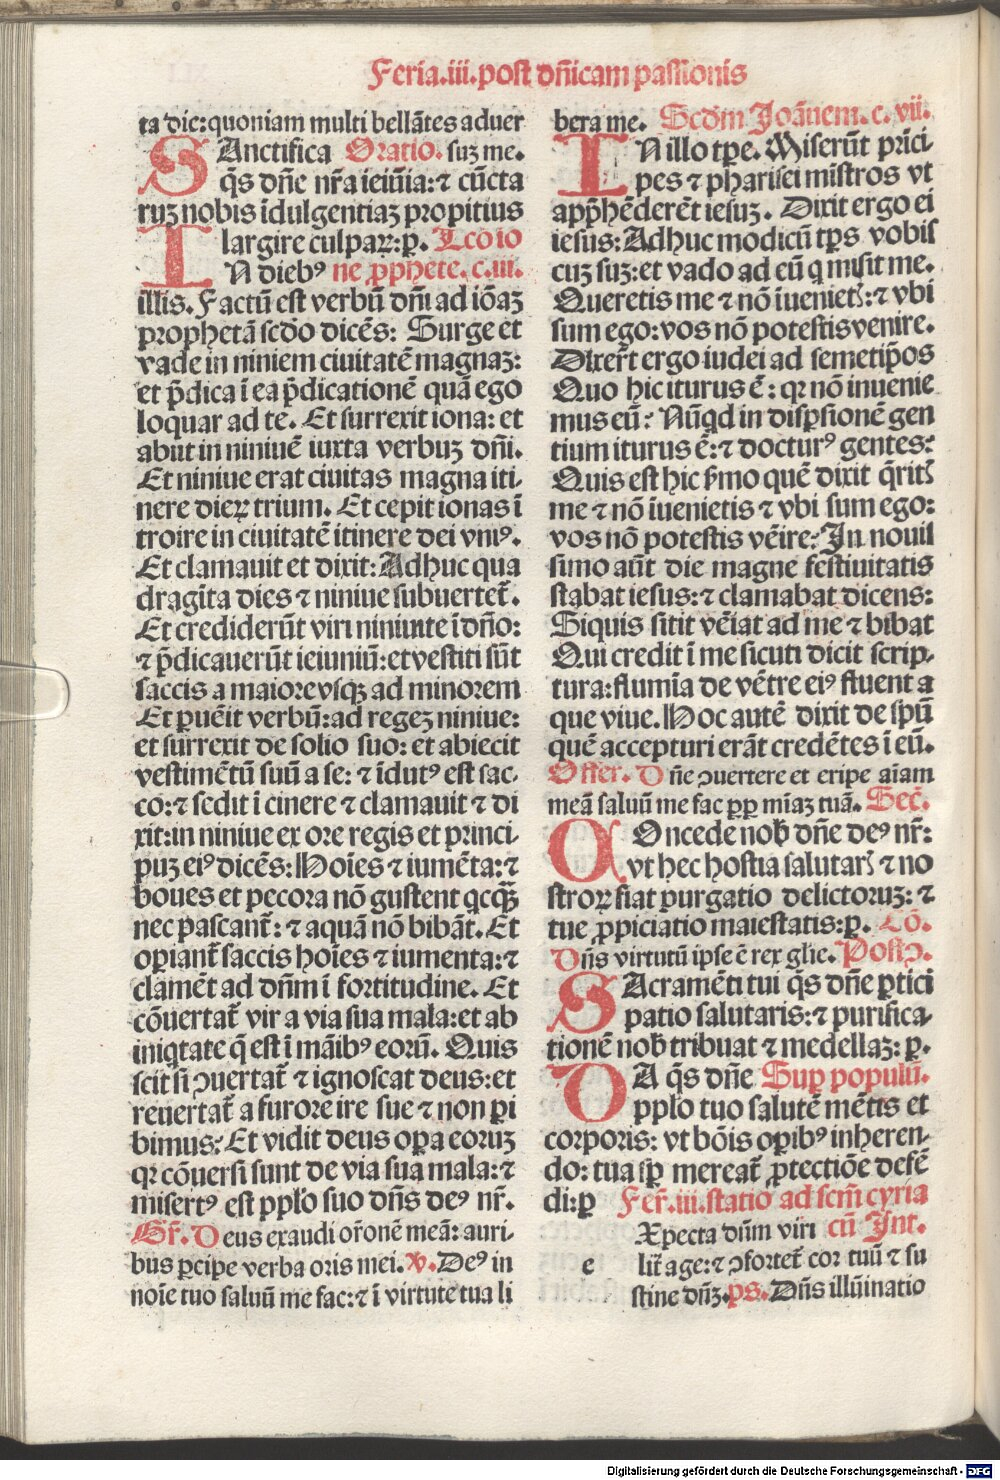 Feria.iii.post dñicam passionis
ta die:quoniam multi bellãtes aduer
SAnctifica Oratio. suꝫ me.
q̃s dñe nr̃a ieiũia:⁊ cũcta
ruꝫ nobis ĩdulgentiaꝫ propitius
largire culpaꝝ:ꝑ. Lco io
IN diebꝰ ne ꝓphete. c.iii.
illis. Factũ est verbũ dñi ad iõaꝫ
prophetã scdo dicẽs: Surge et
vade in niniem ciuitatẽ magnaꝫ:
et p̃dica ĩ ea p̃dicationẽ quã ego
loquar ad te. Et surrexit iona: et
abiit in niniuẽ iuxta verbuꝫ dñi.
Et niniue erat ciuitas magna iti-
nere dieꝝ trium. Et cepit ionas ĩ
troire in ciuitatẽ itinere dei vniꝰ.
Et clamauit et dixit: Adhuc qua
dragĩta dies ⁊ niniue subuertet̃.
Et crediderũt viri niniuite ĩ dño:
⁊ p̃dicauerũt ieiuniũ: et vestiti sũt
saccis a maiore vsqꝫ ad minorem
Et ꝑuẽit verbũ: ad regeꝫ niniue:
et surrexit de solio suo: et abiecit
vestimẽtũ suũ a se: ⁊ ĩdutꝰ est sac-
co: ⁊ sedit ĩ cinere ⁊ clamauit ⁊ di
xit: in niniue ex ore regis et princi-
puꝫ eiꝰ dicẽs: Hoĩes ⁊ iumẽta: ⁊
boues et pecora nõ gustent qcqꝫ̃
nec pascant̃: ⁊ aquã nõ bibãt. Et
oꝑiant̃ saccis hoĩes ⁊ iumenta: ⁊
clamẽt ad dñm ĩ fortitudine. Et
cõuertat̃ vir a via sua mala: et ab
iniqtate q̃ est ĩ mãibꝰ eorũ. Quis
scit si ꝯuertat̃ ⁊ ignoscat deus: et
reuertat̃ a furore ire sue ⁊ non ꝑi
bimus: Et vidit deus oꝑa eoruꝫ
qꝛ cõuersi sunt de via sua mala: ⁊
misertꝰ est pplo suo dñs deꝰ nr̃.
Gr̃. Deus exaudi or̃onẽ meã: auri-
bus ꝑcipe verba oris mei. ℣. Deꝰ in
noĩe tuo saluũ me fac: ⁊ ĩ virtute tua li
bera me. Scdm Joãnem. c. vii.
IN illo tꝑe. Miserũt prĩci-
pes ⁊ pharisei mĩstros vt
app̃hẽderẽt iesuꝫ. Dixit ergo ei
iesus: Adhuc modicũ tꝑs vobis
cuꝫ suꝫ: et vado ad eũ q misit me.
Queretis me ⁊ nõ ĩueniet̃: ⁊ vbi
sum ego: vos nõ potestis venire.
Dixer̃t ergo iudei ad semetip̃os
Quo hic iturus ẽ: qꝛ nõ inuenie
mus eũ: Nũqd in disꝑsionẽ gen
tium iturus ẽ: ⁊ docturꝰ gentes:
Quis est hic ẜmo quẽ dixit q̃rit̃
me ⁊ nõ ĩuenietis ⁊ vbi sum ego:
vos nõ potestis vẽire: In nouis
simo aũt die magne festiuitatis
stabat iesus: ⁊ clamabat dicens:
Siquis sitit vẽiat ad me ⁊ bibat
Qui credit ĩ me sicuti dicit scrip-
tura: flumĩa de vẽtre eiꝰ fluent a
que viue. Hoc autẽ dixit de spũ
quẽ accepturi erãt credẽtes ĩ eũ.
Offer. Dñe ꝯuertere et eripe aĩam
meã saluũ me fac ꝓpꝑ mĩaꝫ tuã. Sec̃.
COncede nob̃ dñe deꝰ nr̃:
vt hec hostia salutar̃ ⁊ no
stroꝝ fiat purgatio delictoruꝫ: ⁊
tue ꝓpiciatio maiestatis: ꝑ. Cõ.
Dñs virtutũ ipse ẽ rex glie. Postꝯ.
SAcramẽti tui q̃s dñe ꝑtici
patio salutaris: ⁊ purifica-
tionẽ nob̃ tribuat ⁊ medellaꝫ: ꝑ.
DA q̃s dñe Suꝑ populũ.
pplo tuo salutẽ mẽtis et
corporis: vt bõis oꝑibꝰ inheren-
do: tua sꝑ mereat̃ ꝓtectiõe defẽ
di: ꝑ Fer̃. iiii. statio ad scm̃ cyria
Xpecta dñm viri cũ Int.
e lit̃ age: ⁊ ꝯfortet̃ cor tuũ ⁊ su
stine dñꝫ. ps. Dñs illũinatio
Digitalisierung gefördert durch die Deutsche Forschungsgemeinschaft - DFG